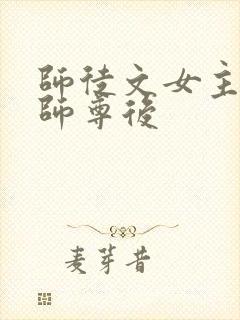 師徒文女主
師尊後
麦芽昔